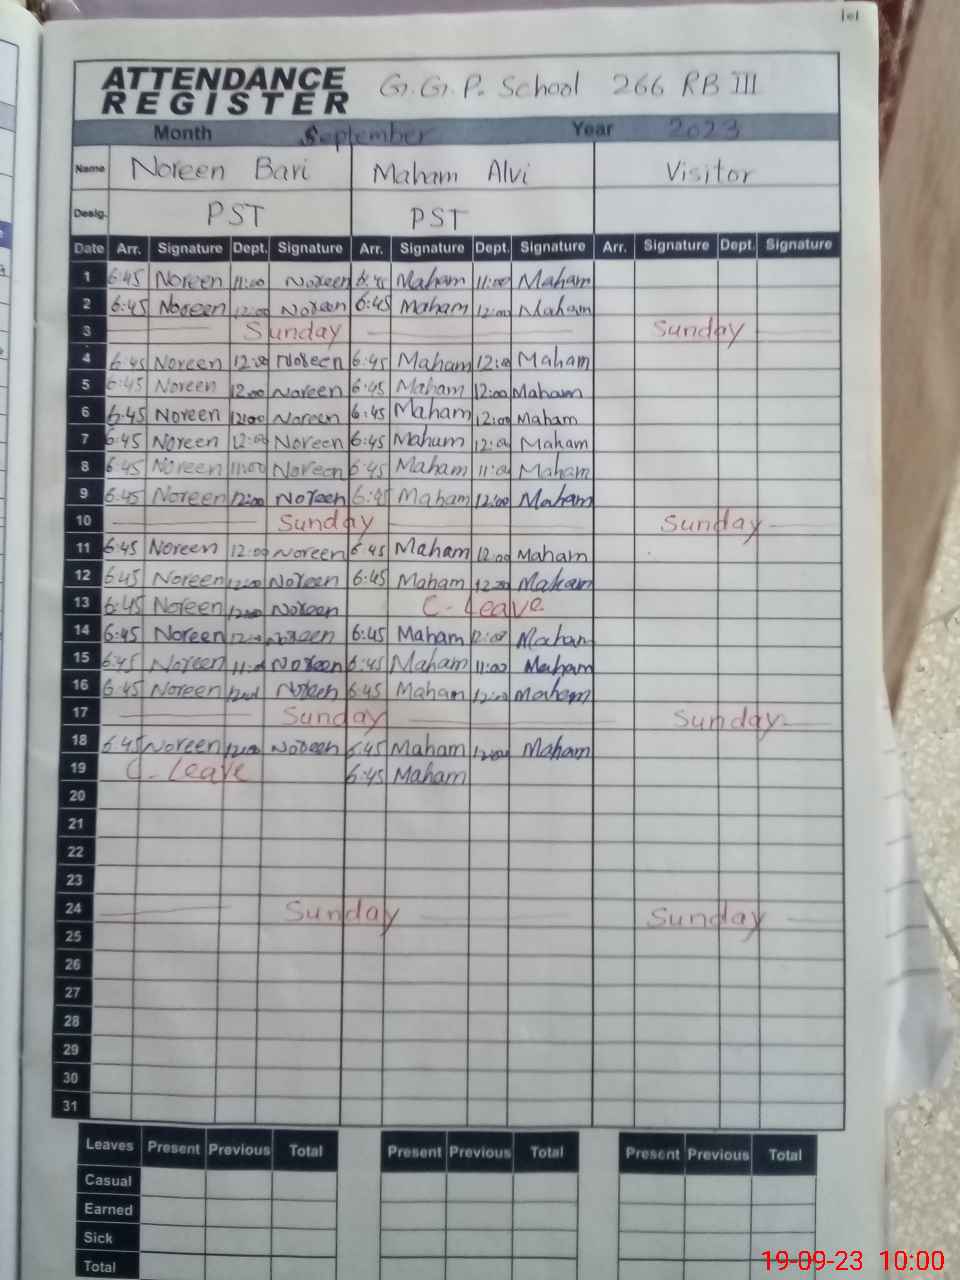 ATTENDANCE REGISTER G.G.P. School 266 RB III
Month September Year 2023
Name Noreen Bari Maham Alvi Visitor
Desig. PST PST
Date Arr. Signature Dept. Signature Arr. Signature Dept. Signature Arr. Signature Dept. Signature
1 6:45 Noreen 11:00 Noreen 6:45 Maham 11:00 Maham
2 6:45 Noreen 12:00 Noreen 6:45 Maham 12:00 Maham
3 Sunday Sunday
4 6:45 Noreen 12:00 Noreen 6:45 Maham 12:00 Maham
5 6:45 Noreen 12:00 Noreen 6:45 Maham 12:00 Maham
6 6:45 Noreen 12:00 Noreen 6:45 Maham 12:00 Maham
7 6:45 Noreen 12:00 Noreen 6:45 Maham 12:00 Maham
8 6:45 Noreen 11:00 Noreen 6:45 Maham 11:00 Maham
9 6:45 Noreen 12:00 Noreen 6:45 Maham 12:00 Maham
10 Sunday Sunday
11 6:45 Noreen 12:00 Noreen 6:45 Maham 12:00 Maham
12 6:45 Noreen 12:00 Noreen 6:45 Maham 12:00 Maham
13 6:45 Noreen 12:00 Noreen C-Leave
14 6:45 Noreen 12:00 Noreen 6:45 Maham 12:00 Maham
15 6:45 Noreen 11:00 Noreen 6:45 Maham 11:00 Maham
16 6:45 Noreen 12:00 Noreen 6:45 Maham 12:00 Maham
17 Sunday Sunday
18 6:45 Noreen 12:00 Noreen 6:45 Maham 12:00 Maham
19 C-Leave 6:45 Maham
20
21
22
23
24 Sunday Sunday
25
26
27
28
29
30
31
Leaves Present Previous Total Present Previous Total Present Previous Total
Casual
Earned
Sick
Total
19-09-23 10:00